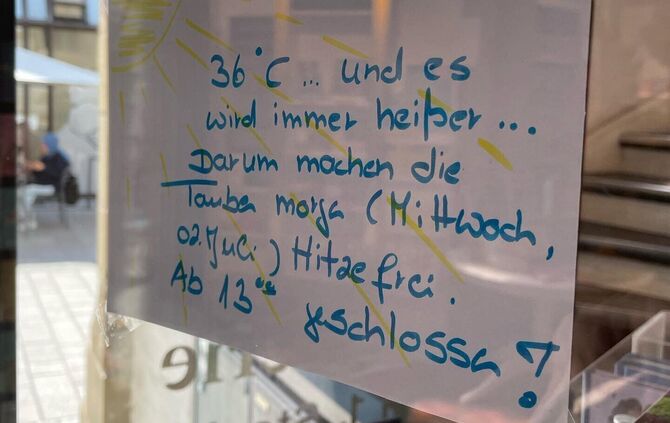 36°C ... und es
wird immer heißer ...
Darum machen die
Tauben morgen (Mittwoch,
02. Juli) Hitzefrei.
Ab 13°° geschlossen!